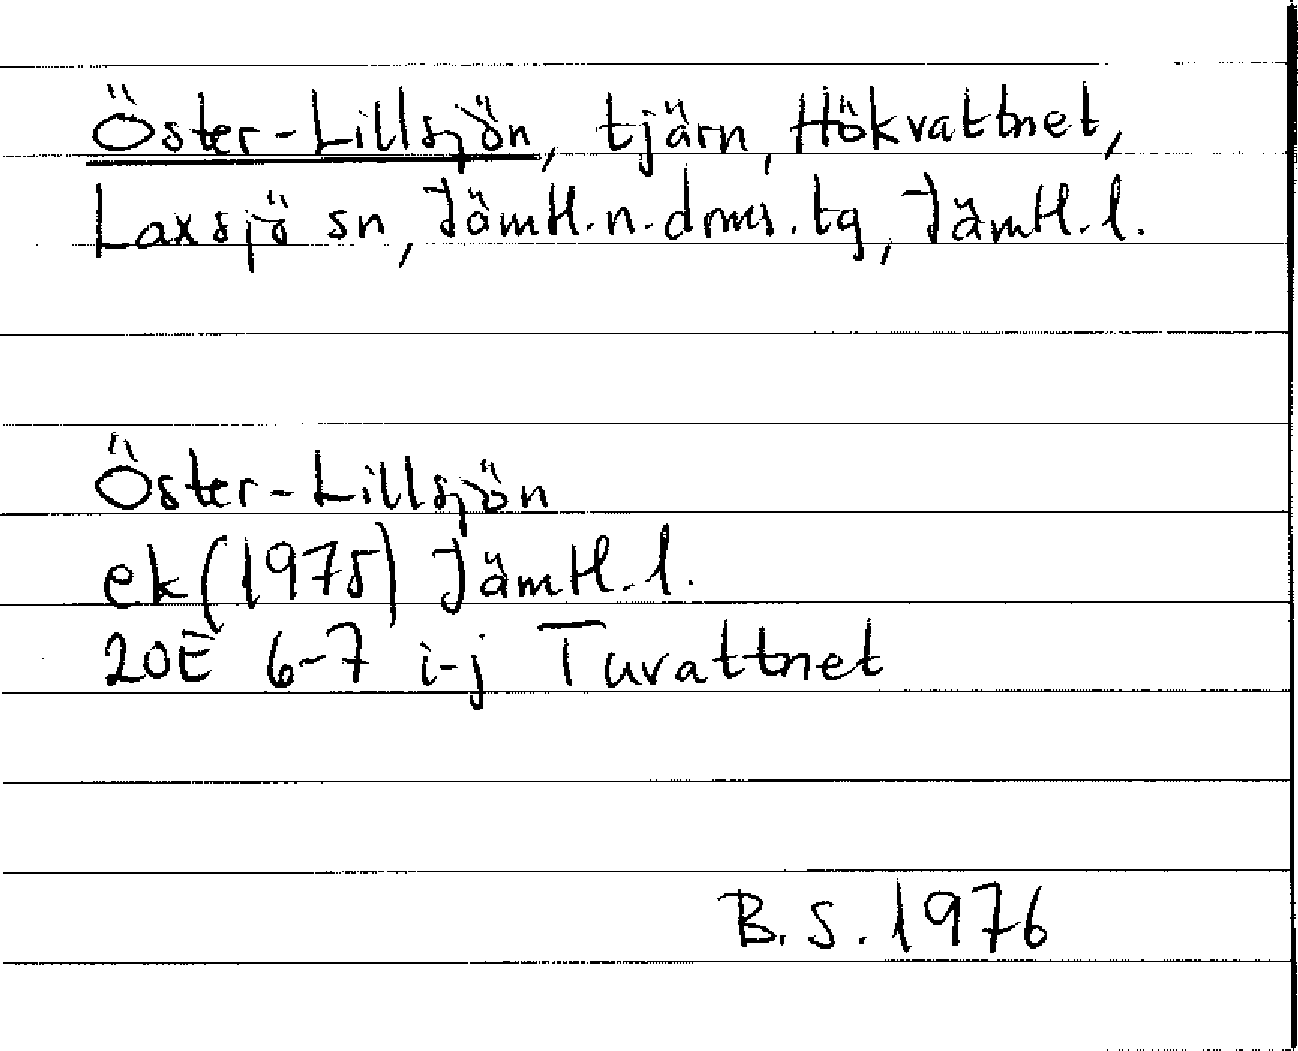 Öster-Lillsjön, tjärn, Hökvattnet,
Laxsjö sn, Jämtl.n.doms.tg, Jämtl.l.
Öster-Lillsjön
ek(1975) Jämtl.l.
20E 6-7 i-j Tuvattnet
B.S. 1976